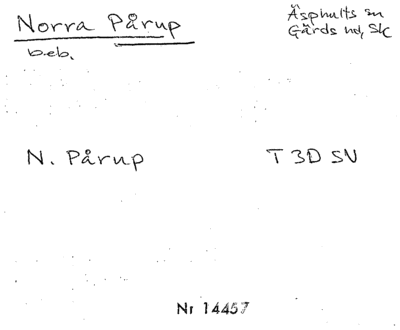 Norra Pårup
beb.
Äsphults sn
Gärds hd, Sk
N. Pårup
T 3D SV
Nr 14457